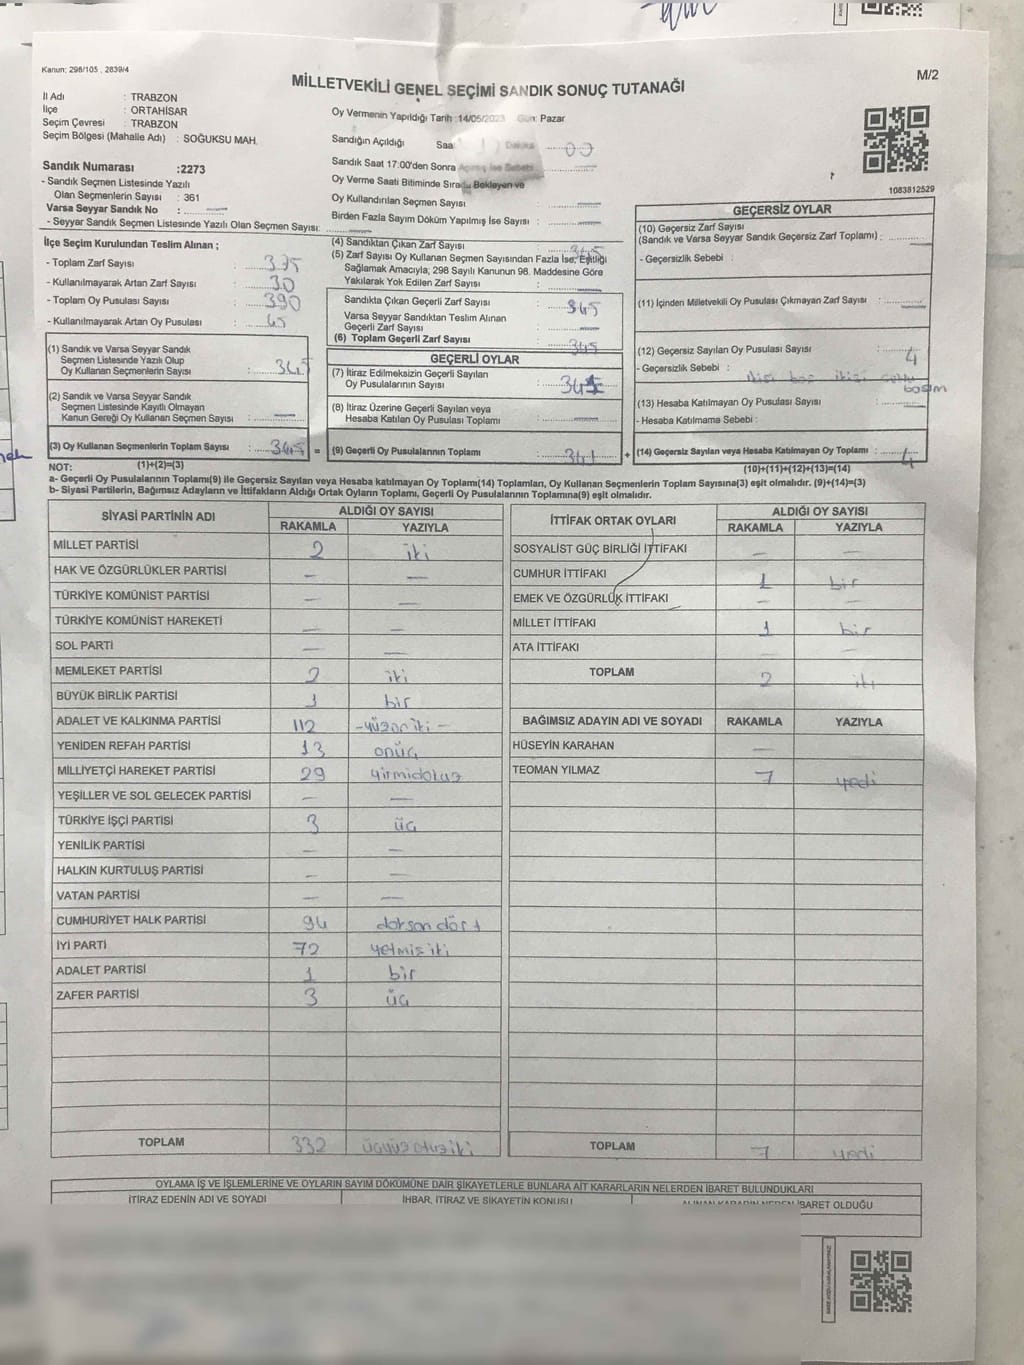 Kanun; 298/105 , 2839/4
MİLLETVEKİLİ GENEL SEÇİMİ SANDIK SONUÇ TUTANAĞI
M/2
İl Adı : TRABZON
İlçe : ORTAHİSAR
Seçim Çevresi : TRABZON
Seçim Bölgesi (Mahalle Adı) : SOĞUKSU MAH.
Sandık Numarası :2273
- Sandık Seçmen Listesinde Yazılı
Olan Seçmenlerin Sayısı : 361
Varsa Seyyar Sandık No :
- Seyyar Sandık Seçmen Listesinde Yazılı Olan Seçmen Sayısı:
Oy Vermenin Yapıldığı Tarih :14/05/2023 Gün: Pazar
Sandığın Açıldığı Saa Dakika 00
Sandık Saat 17:00'den Sonra Açılmış İse Sebebi
Oy Verme Saati Bitiminde Sırada Bekleyen ve
Oy Kullandırılan Seçmen Sayısı :
Birden Fazla Sayım Döküm Yapılmış İse Sayısı :
1083812529
İlçe Seçim Kurulundan Teslim Alınan ;
- Toplam Zarf Sayısı : 375
- Kullanılmayarak Artan Zarf Sayısı : 30
- Toplam Oy Pusulası Sayısı : 390
- Kullanılmayarak Artan Oy Pusulası : 45
(1) Sandık ve Varsa Seyyar Sandık
Seçmen Listesinde Yazılı Olup
Oy Kullanan Seçmenlerin Sayısı : 345
(2) Sandık ve Varsa Seyyar Sandık
Seçmen Listesinde Kayıtlı Olmayan
Kanun Gereği Oy Kullanan Seçmen Sayısı :
(3) Oy Kullanan Seçmenlerin Toplam Sayısı : 345 =
(4) Sandıktan Çıkan Zarf Sayısı : 345
(5) Zarf Sayısı Oy Kullanan Seçmen Sayısından Fazla İse, Eşitliği
Sağlamak Amacıyla; 298 Sayılı Kanunun 98. Maddesine Göre
Yakılarak Yok Edilen Zarf Sayısı :
Sandıkta Çıkan Geçerli Zarf Sayısı : 345
Varsa Seyyar Sandıktan Teslim Alınan
Geçerli Zarf Sayısı :
(6) Toplam Geçerli Zarf Sayısı : 345
GEÇERLİ OYLAR
(7) İtiraz Edilmeksizin Geçerli Sayılan
Oy Pusulalarının Sayısı :
(8) İtiraz Üzerine Geçerli Sayılan veya
Hesaba Katılan Oy Pusulası Toplamı :
(9) Geçerli Oy Pusulalarının Toplamı : 341 +
GEÇERSİZ OYLAR
(10) Geçersiz Zarf Sayısı
(Sandık ve Varsa Seyyar Sandık Geçersiz Zarf Toplamı) :
- Geçersizlik Sebebi :
(11) İçinden Milletvekili Oy Pusulası Çıkmayan Zarf Sayısı :
(12) Geçersiz Sayılan Oy Pusulası Sayısı : 4
- Geçersizlik Sebebi :
(13) Hesaba Katılmayan Oy Pusulası Sayısı :
- Hesaba Katılmama Sebebi :
(14) Geçersiz Sayılan veya Hesaba Katılmayan Oy Toplamı : 4
NOT: (1)+(2)=(3)
(10)+(11)+(12)+(13)=(14)
a- Geçerli Oy Pusulalarının Toplamı(9) ile Geçersiz Sayılan veya Hesaba katılmayan Oy Toplamı(14) Toplamları, Oy Kullanan Seçmenlerin Toplam Sayısına(3) eşit olmalıdır. (9)+(14)=(3)
b- Siyasi Partilerin, Bağımsız Adayların ve İttifakların Aldığı Ortak Oyların Toplamı, Geçerli Oy Pusulalarının Toplamına(9) eşit olmalıdır.
SİYASİ PARTİNİN ADI
ALDIĞI OY SAYISI
RAKAMLA YAZIYLA
MİLLET PARTİSİ 2 iki
HAK VE ÖZGÜRLÜKLER PARTİSİ — —
TÜRKİYE KOMÜNİST PARTİSİ — —
TÜRKİYE KOMÜNİST HAREKETİ — —
SOL PARTİ — —
MEMLEKET PARTİSİ 2 iki
BÜYÜK BİRLİK PARTİSİ 1 bir
ADALET VE KALKINMA PARTİSİ 112 -yüzoniki-
YENİDEN REFAH PARTİSİ 13 onüç
MİLLİYETÇİ HAREKET PARTİSİ 29 yirmidokuz
YEŞİLLER VE SOL GELECEK PARTİSİ — —
TÜRKİYE İŞÇİ PARTİSİ 3 üç
YENİLİK PARTİSİ — —
HALKIN KURTULUŞ PARTİSİ — —
VATAN PARTİSİ — —
CUMHURİYET HALK PARTİSİ 94 doksan dört
İYİ PARTİ 72 yetmiş iki
ADALET PARTİSİ 1 bir
ZAFER PARTİSİ 3 üç
TOPLAM 332 üçyüz otuz iki
İTTİFAK ORTAK OYLARI
ALDIĞI OY SAYISI
RAKAMLA YAZIYLA
SOSYALİST GÜÇ BİRLİĞİ İTTİFAKI — —
CUMHUR İTTİFAKI 1 bir
EMEK VE ÖZGÜRLÜK İTTİFAKI — —
MİLLET İTTİFAKI 1 bir
ATA İTTİFAKI — —
TOPLAM 2 iki
BAĞIMSIZ ADAYIN ADI VE SOYADI RAKAMLA YAZIYLA
HÜSEYİN KARAHAN —
TEOMAN YILMAZ 7 yedi
TOPLAM 7 yedi
OYLAMA İŞ VE İŞLEMLERİNE VE OYLARIN SAYIM DÖKÜMÜNE DAİR ŞİKAYETLERLE BUNLARA AİT KARARLARIN NELERDEN İBARET BULUNDUKLARI
İTİRAZ EDENİN ADI VE SOYADI İHBAR, İTİRAZ VE ŞİKAYETİN KONUSU ALINAN KARARIN NEDEN İBARET OLDUĞU